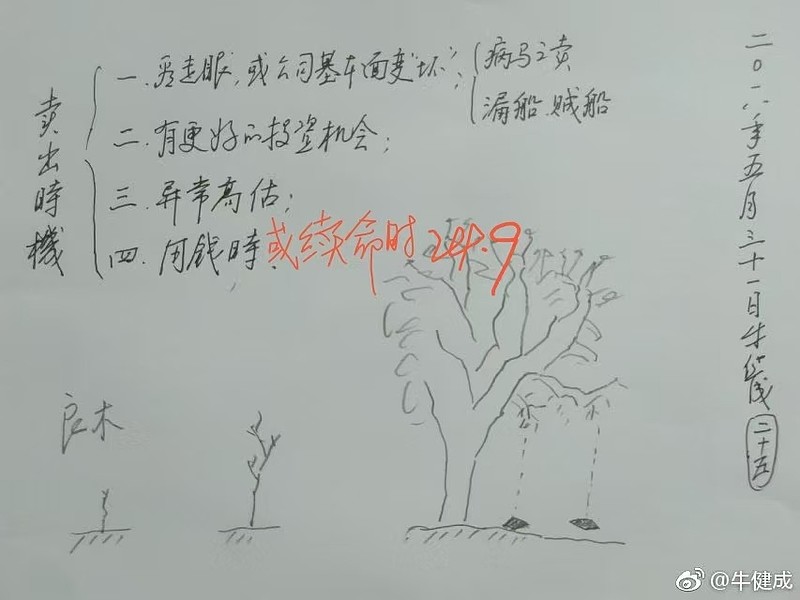 卖出時機
一.看走眼,或公司基本面变“坏”;
病马之卖
漏船.贼船
二.有更好的投资机会;
三.异常高估;
四.用钱時.或续命时24.9
良木
二〇一八年五月三十一日牛箴 二十五
@牛健成